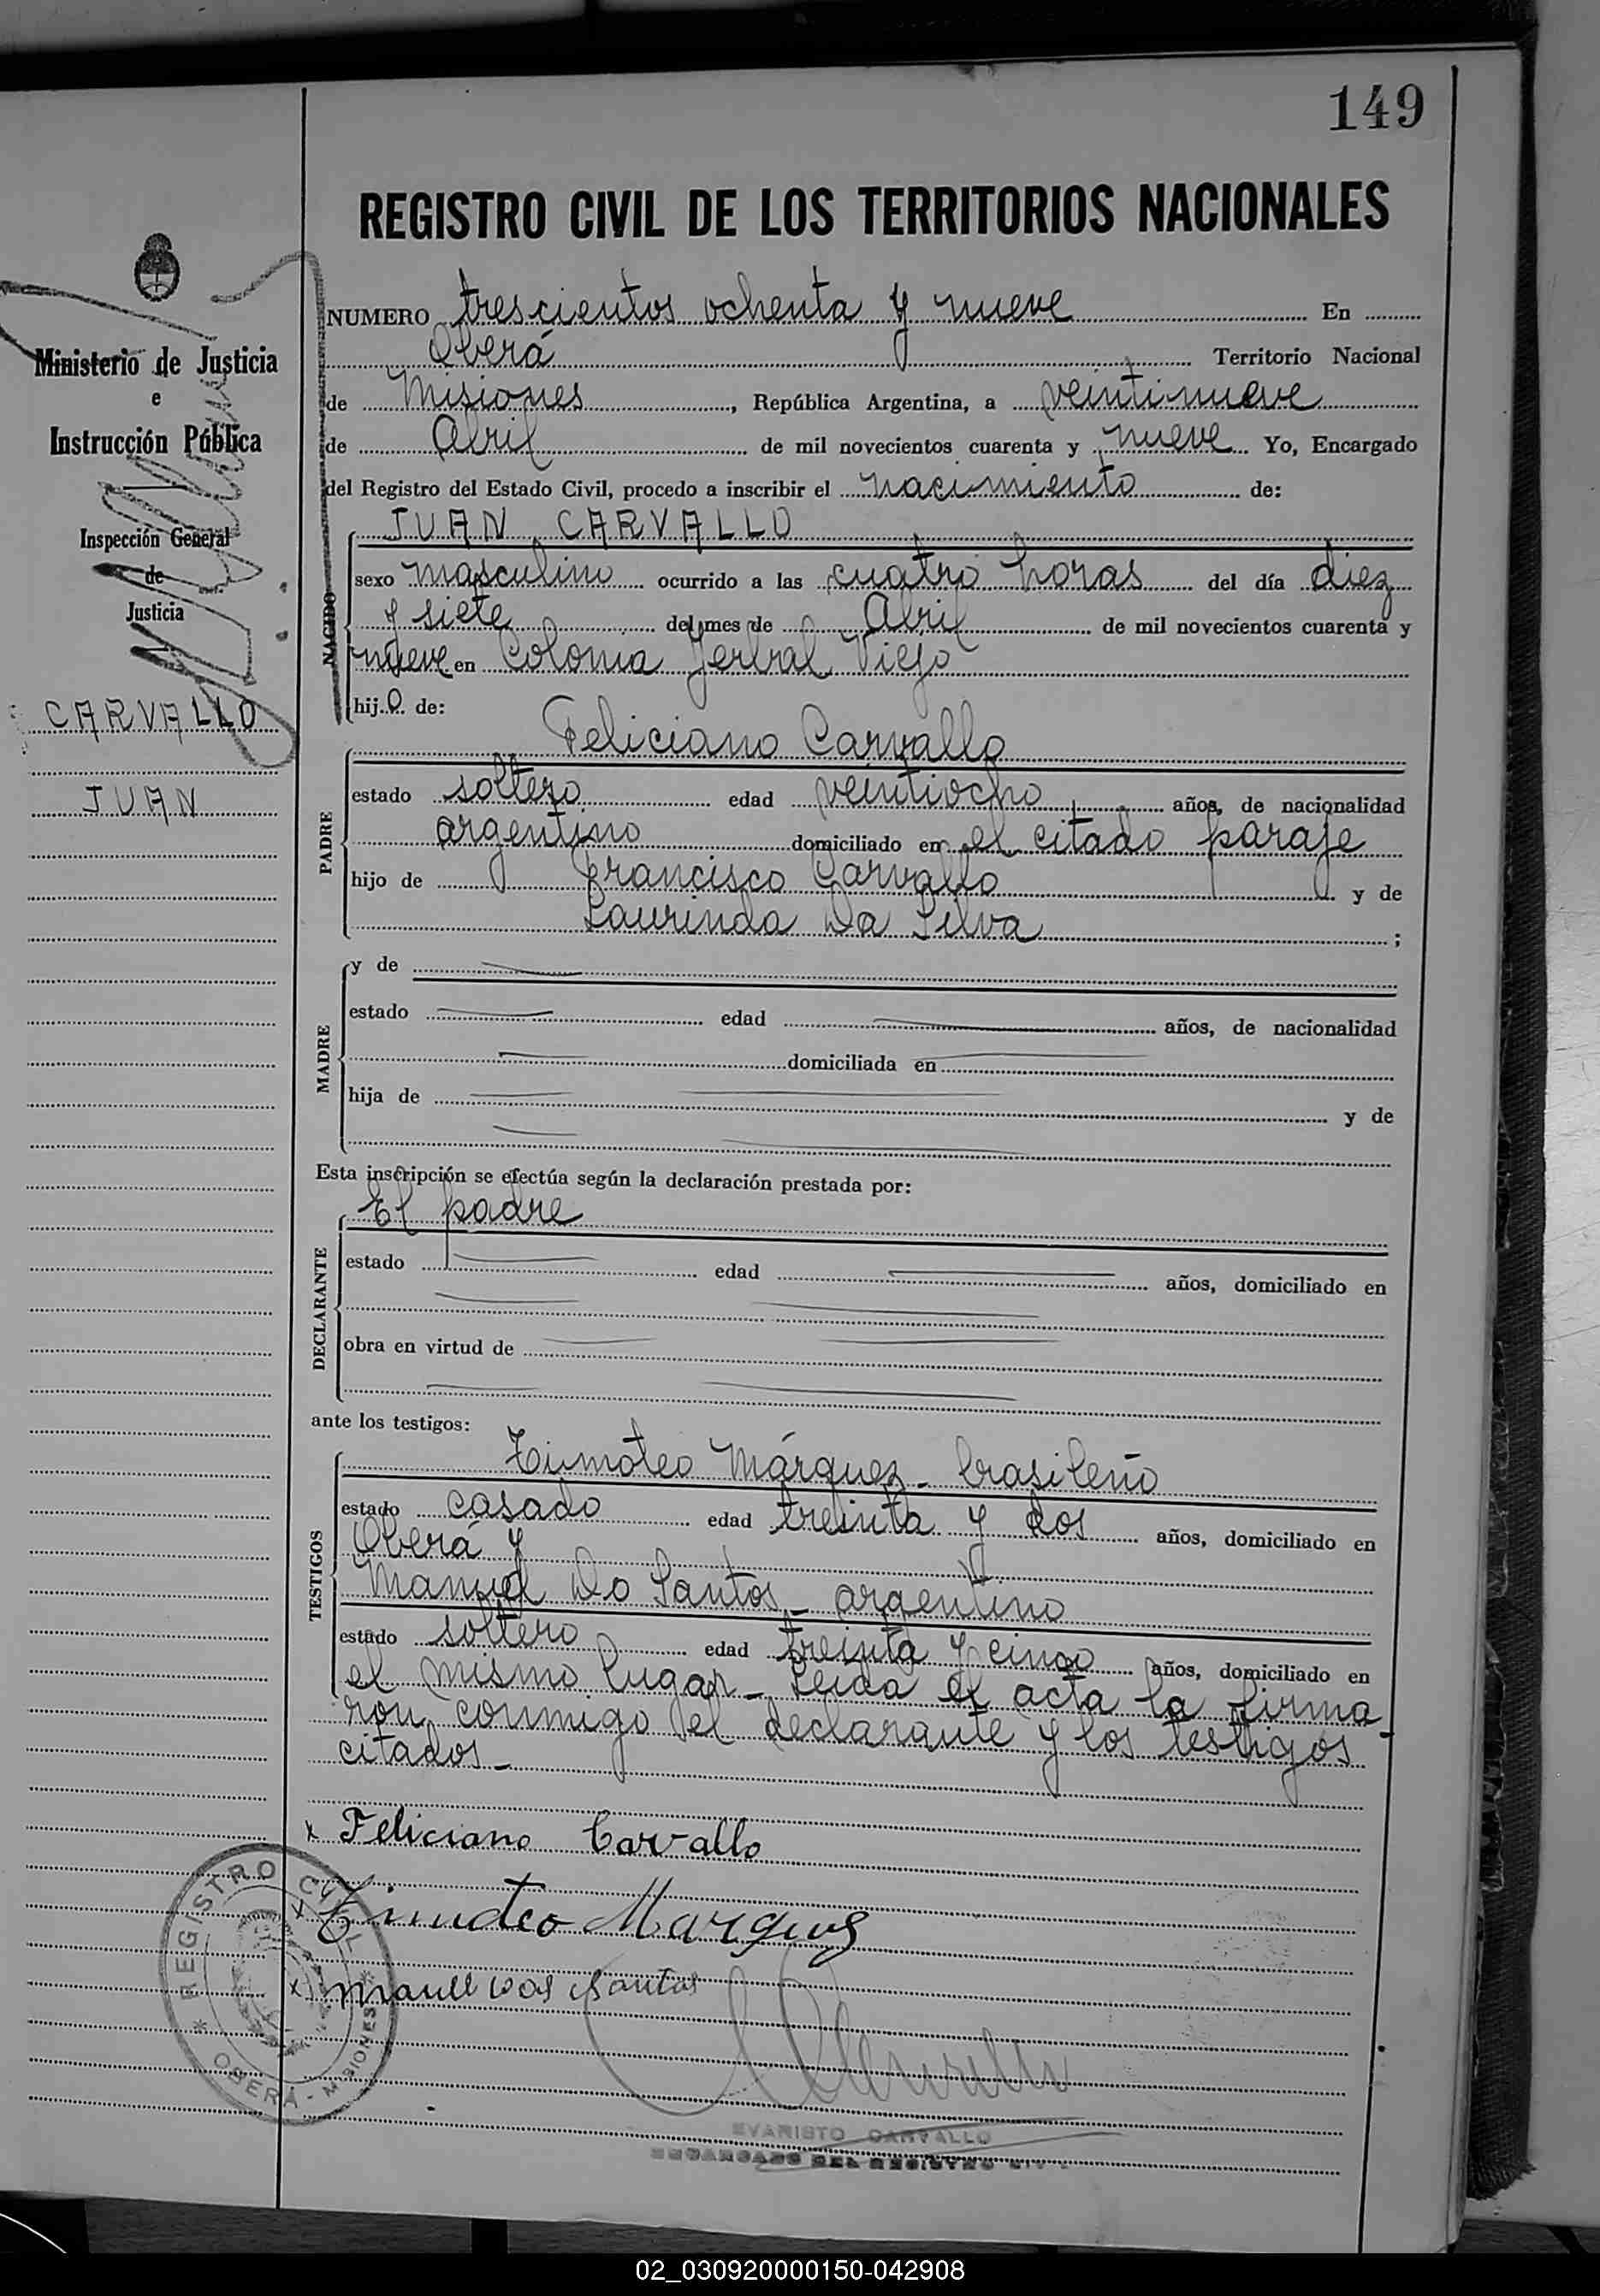 149
REGISTRO CIVIL DE LOS TERRITORIOS NACIONALES
Ministerio de Justicia
e
Instrucción Pública
Inspección General
de
Justicia
CARVALLO
JUAN
NUMERO trescientos ochenta y nueve En
Oberá Territorio Nacional
de Misiones, República Argentina, a veintinueve
de Abril de mil novecientos cuarenta y nueve Yo, Encargado
del Registro del Estado Civil, procedo a inscribir el nacimiento de:
NACIDO
JUAN CARVALLO
sexo masculino ocurrido a las cuatro horas del día diez
y siete del mes de Abril de mil novecientos cuarenta y
nueve en Colonia Yerbal Viejo
hijo de:
PADRE
Feliciano Carvallo
estado soltero edad veintiocho años, de nacionalidad
argentino domiciliado en el citado paraje
hijo de Francisco Carvallo y de
Laurinda Da Silva ;
MADRE
y de
estado edad años, de nacionalidad
domiciliada en
hija de y de
Esta inscripción se efectúa según la declaración prestada por:
DECLARANTE
El padre
estado edad años, domiciliado en
obra en virtud de
ante los testigos:
TESTIGOS
Timoteo Márquez - brasileño
estado casado edad treinta y dos años, domiciliado en
Oberá y
Manuel Do Santos - argentino
estado soltero edad treinta y cinco años, domiciliado en
el mismo lugar - Leida el acta la firma-
ron conmigo el declarante y los testigos
citados -
x Feliciano Carvallo
x Timoteo Marques
x Manuel dos Santos
REGISTRO CIVIL
OBERÁ - MISIONES
EVARISTO CARVALLO
ENCARGADO DEL REGISTRO CIVIL
02_030920000150-042908